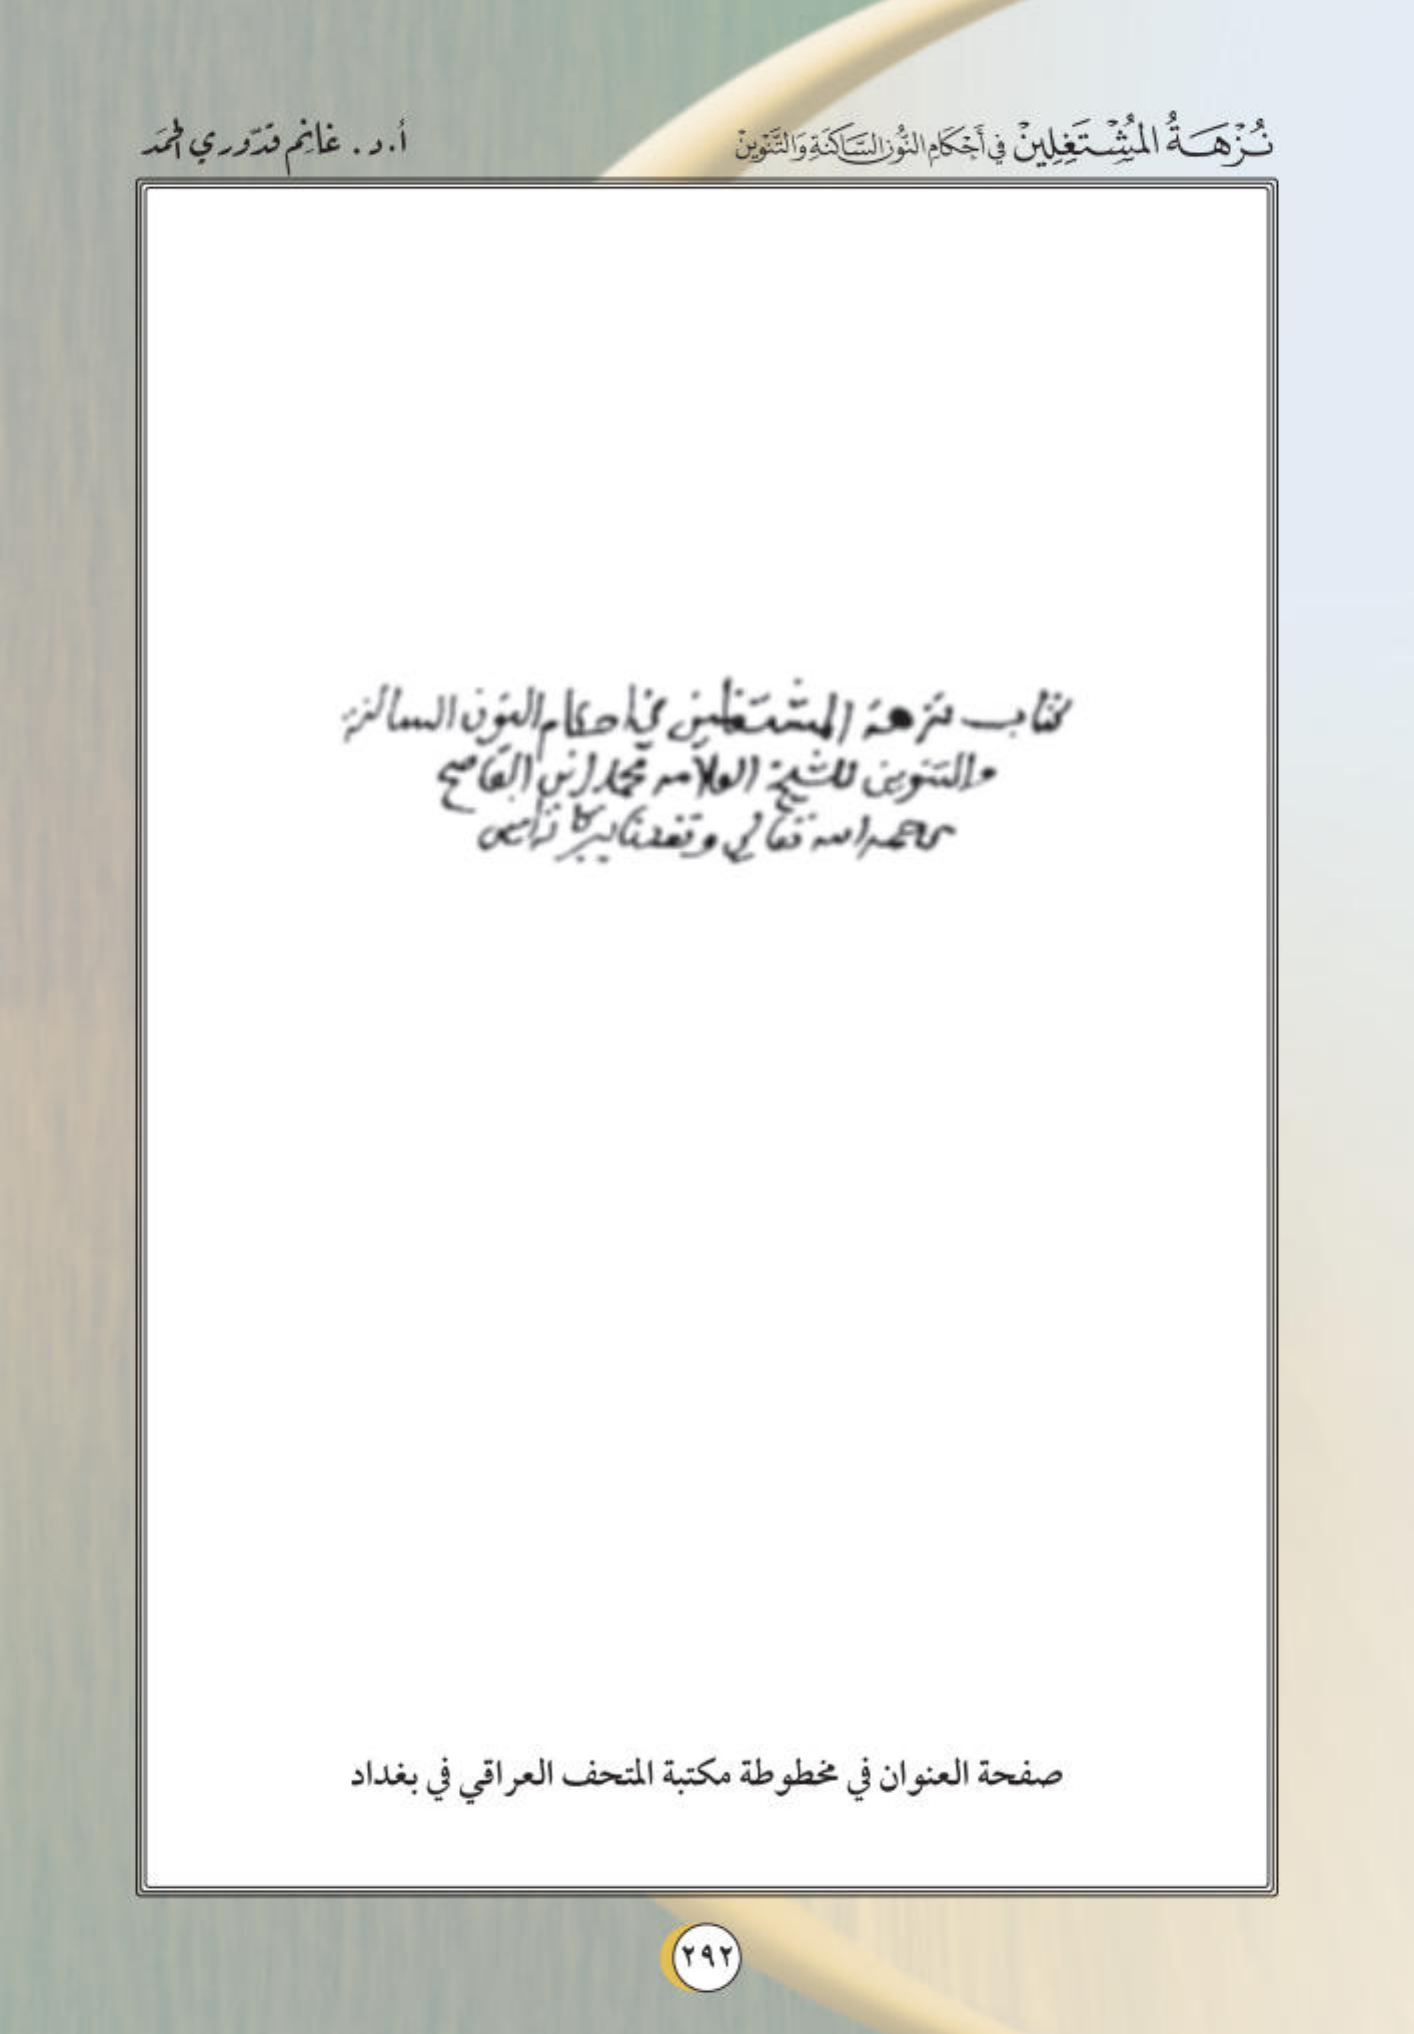 نُزْهَةُ المُشْتَغِلِينَ فِي أَحْكَامِ النُّونِ السَّاكِنَةِ وَالتَّنْوِينِ
أ.د. غانم قدّوري الحَمَد
كتاب نزهة المشتغلين في احكام النون الساكنة
والتنوين للشيخ العلامه محمد ابن القاصح
رحمه الله تعالى ونفعنا ببركاته امين
صفحة العنوان في مخطوطة مكتبة المتحف العراقي في بغداد
٢٩٢